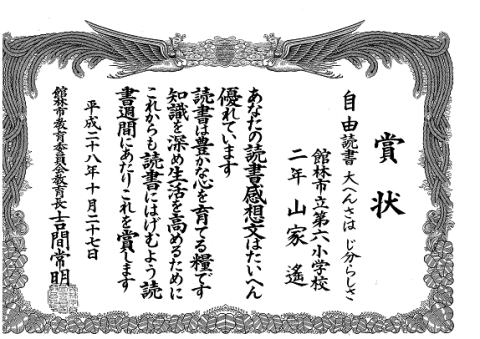 賞状
自由読書 大へんさは じ分らしさ
館林市立第六小学校
二年 山家 遙
あなたの読書感想文はたいへん
優れています
読書は豊かな心を育てる糧です
知識を深め生活を高めるために
これからも読書にはげむよう読
書週間にあたりこれを賞します
平成二十八年十月二十七日
館林市教育委員会教育長 吉間常明